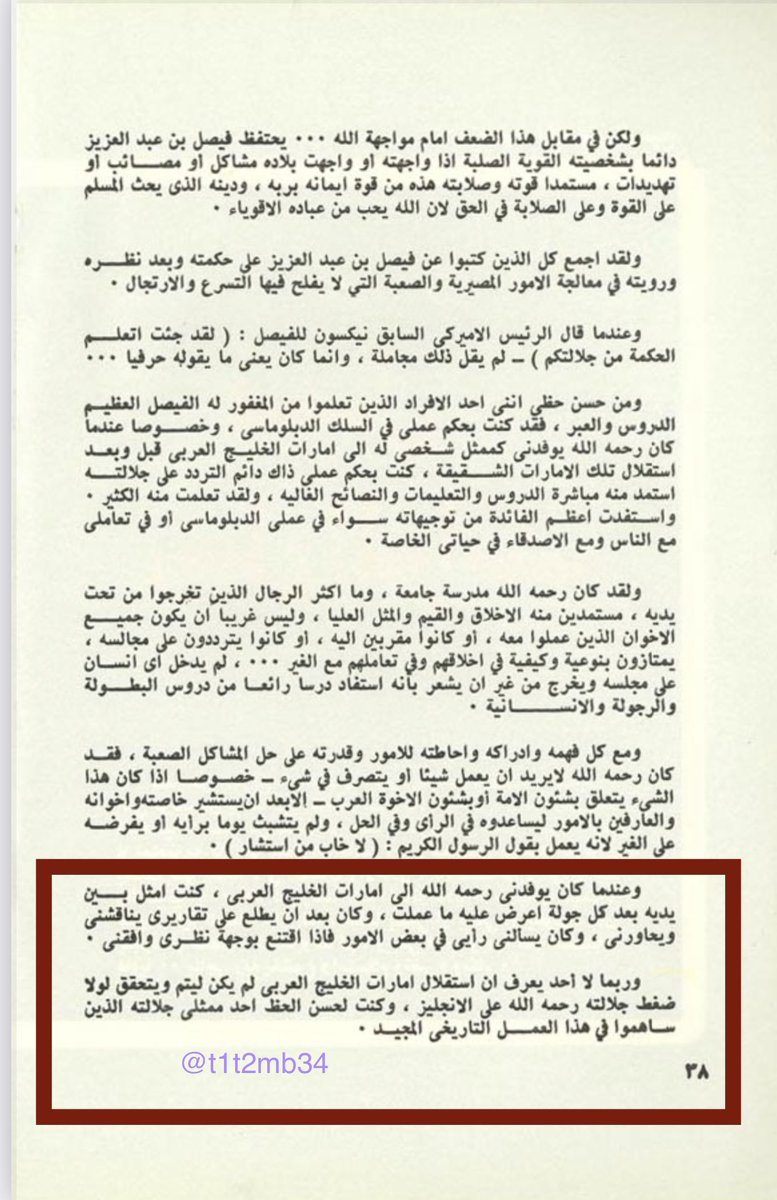 ولكن في مقابل هذا الضعف امام مواجهة الله ٠٠٠ يحتفظ فيصل بن عبد العزيز
دائما بشخصيته القوية الصلبة اذا واجهته او واجهت بلاده مشاكل او مصـــائب او
تهديدات ، مستمدا قوته وصلابته هذه من قوة ايمانه بربه ، ودينه الذى يحث المسلم
على القوة وعلى الصلابة في الحق لان الله يحب من عباده الاقوياء ٠
ولقد اجمع كل الذين كتبوا عن فيصل بن عبد العزيز على حكمته وبعد نظـــره
ورويته في معالجة الامور المصيرية والصعبة التي لا يفلح فيها التسرع والارتجال ٠
وعندما قال الرئيس الاميركى السابق نيكسون للفيصل : ( لقد جئت اتعلـــم
الحكمة من جلالتكم ) ــ لم يقل ذلك مجاملة ، وانما كان يعنى ما يقوله حرفيا ٠٠٠
ومن حسن حظي اننى احد الافراد الذين تعلموا من المغفور له الفيصل العظيـم
الدروس والعبر ، فقد كنت بحكم عملى في السلك الدبلوماسى ، وخصـــوصا عندما
كان رحمه الله يوفدنى كممثل شـخصى له الى امارات الخليـج العربى قبل وبعـد
استقلال تلك الامارات الشـــقيقة ، كنت بحكم عملى ذاك دائم التردد على جلالتـــه
استمد منه مباشرة الدروس والتعليمات والنصائح الغاليه ، ولقد تعلمت منه الكثير ٠
واســتفدت أعظــم الفائدة من توجيهاته ســـواء في عملى الدبلوماسى أو في تعاملى
مع الناس ومع الاصدقاء في حياتى الخاصة ٠
ولقد كان رحمه الله مدرسة جامعة ، وما اكثر الرجال الذين تخرجوا من تحت
يديه ، مستمدين منه الاخلاق والقيم والمثل العليا ، وليس غريبا ان يكون جميـــع
الاخوان الذين عملوا معه ، أو كانوا مقربين اليه ، أو كانوا يترددون على مجالسه ،
يمتازون بنوعية وكيفية في اخلاقهم وفي تعاملهم مع الغير ٠٠٠ ، لم يدخل أى انســان
على مجلسه ويخرج من غير ان يشعر بأنه استفاد درسا رائعـا من دروس البطــولة
والرجولة والانســـــانية ٠
ومع كل فهمه وادراكه واحاطته للامور وقدرته على حل المشاكل الصعبة ، فقــد
كان رحمه الله لايريد ان يعمل شيئا أو يتصرف في شيء ــ خصـوصـا اذا كان هذا
الشيء يتعلق بشئون الامة أوبشئون الاخوة العرب ــ الابعد ان يستشير خاصته واخوانه
والعارفين بالامور ليساعدوه في الرأى وفي الحل ، ولم يتشبث يوما برأيه أو يفرضــه
على الغير لانه يعمل بقول الرسول الكريم : ( لا خاب من استشار ) ٠
وعندما كان يوفدنى رحمه الله الى امارات الخليج العربى ، كنت امثل بـــين
يديه بعد كل جولة اعرض عليه ما عملت ، وكان بعد ان يطلع على تقاريرى يناقشنى
ويحاورنى ، وكان يسألنى رأيى في بعض الامور فاذا اقتنع بوجهة نظــرى وافقنى ٠
وربما لا أحد يعرف ان استقلال امارات الخليج العربى لم يكن ليتم ويتحقق لولا
ضغط جلالته رحمه الله على الانجليز ، وكنت لحسن الحظ احد ممثلى جلالته الذين
ســاهموا في هذا العمـــل التاريخى المجيـد ٠
@t1t2mb34
٣٨